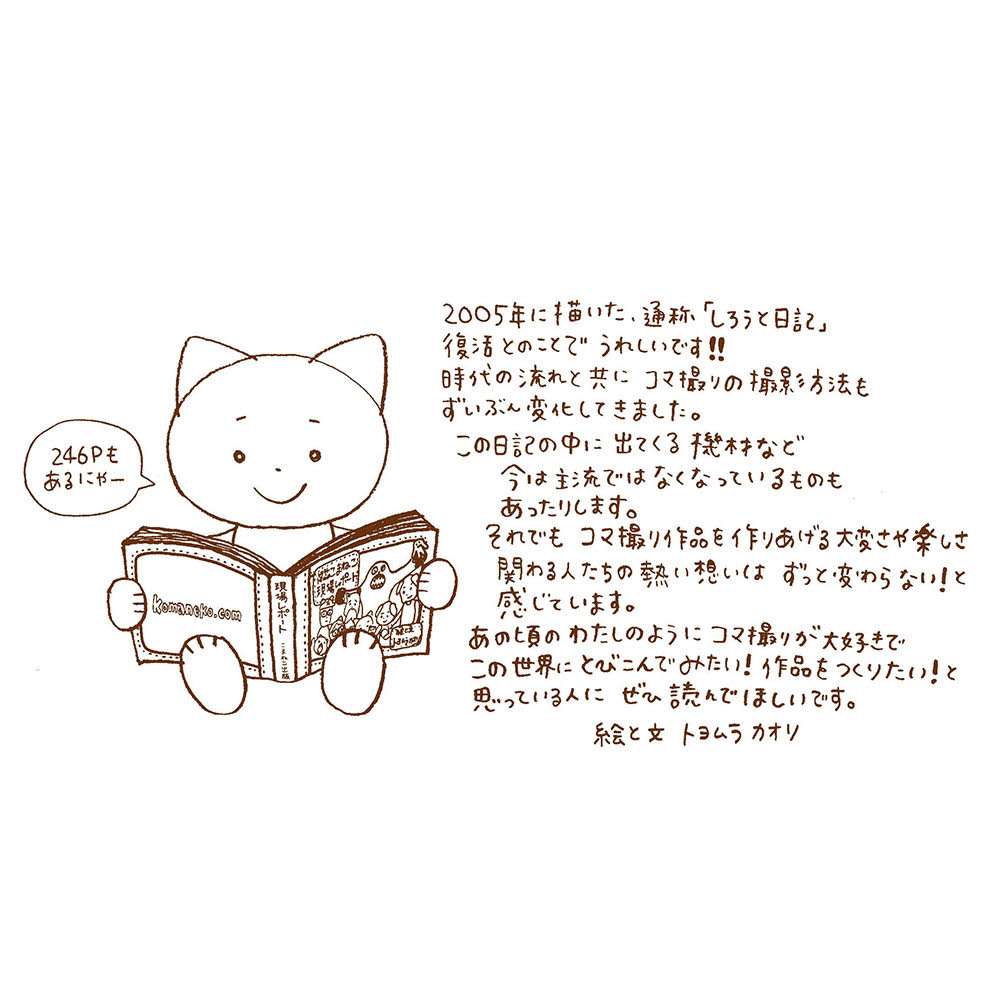 246Pも
あるにゃー
komaneko.com
現場レポート
こまねこ出版
こまねこ
現場レポート
2005年に描いた、通称「しろうと日記」
復活とのことで うれしいです!!
時代の流れと共に コマ撮りの撮影方法も
ずいぶん変化してきました。
この日記の中に出てくる機材など
今は主流ではなくなっているものも
あったりします。
それでも コマ撮り作品を作りあげる大変さや楽しさ
関わる人たちの熱い想いは ずっと変わらない!と
感じています。
あの頃のわたしのように コマ撮りが大好きで
この世界にとびこんでみたい!作品をつくりたい!と
思っている人に ぜひ読んでほしいです。
絵と文 トヨムラカオリ